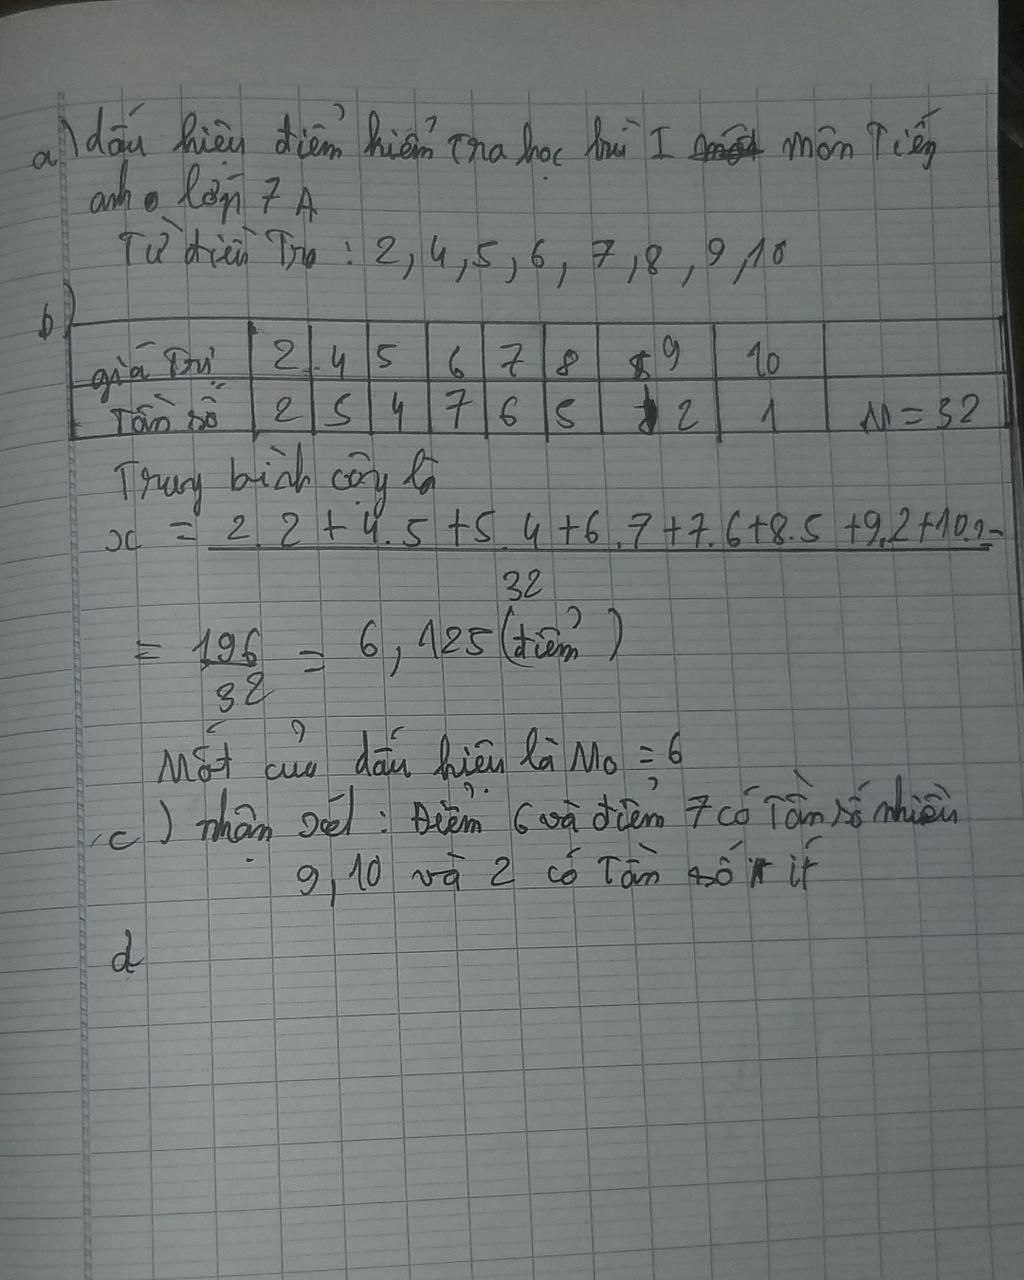 a) dấu hiệu điểm kiểm tra học kì I môn Tiếng
anh lớp 7A
Từ điều Tra : 2, 4, 5, 6, 7, 8, 9, 10
b)
giá Trị 2 4 5 6 7 8 9 10
Tần số 2 5 4 7 6 5 2 1 N = 32
Trung bình cộng là
x = 2.2+4.5+5.4+6.7+7.6+8.5+9.2+10.1=
32
= 196/32 = 6,125 (điểm)
Mốt của dấu hiệu là M0 = 6
c) nhận xét : Điểm 6 và điểm 7 có Tần số nhiều
9, 10 và 2 có Tần số ít
d